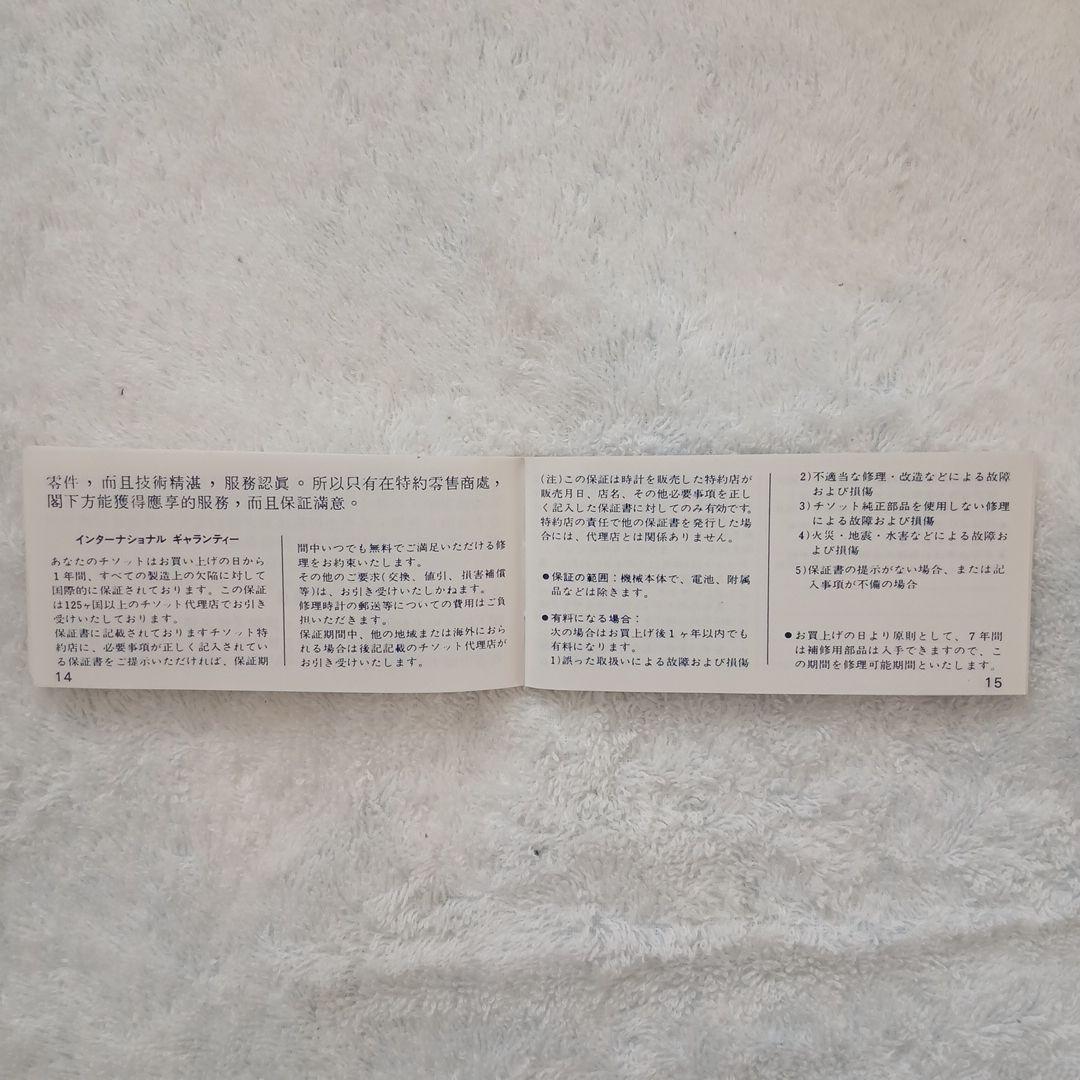 零件，而且技術精湛，服務認眞。所以只有在特約零售商處，
閣下方能獲得應享的服務，而且保証滿意。
インターナショナル ギャランティー
あなたのチソットはお買い上げの日から
1年間、すべての製造上の欠陥に対して
国際的に保証されております。この保証
は125ヶ国以上のチソット代理店でお引き
受けいたしております。
保証書に記載されておりますチソット特
約店に、必要事項が正しく記入されてい
る保証書をご提示いただければ、保証期
間中いつでも無料でご満足いただける修
理をお約束いたします。
その他のご要求(交換、値引、損害補償
等)は、お引き受けいたしかねます。
修理時計の郵送等についての費用はご負
担いただきます。
保証期間中、他の地域または海外におら
れる場合は後記記載のチソット代理店が
お引き受けいたします。
14
(注)この保証は時計を販売した特約店が
販売月日、店名、その他必要事項を正し
く記入した保証書に対してのみ有効です。
特約店の責任で他の保証書を発行した場
合には、代理店とは関係ありません。
●保証の範囲：機械本体で、電池、附属
品などは除きます。
●有料になる場合：
次の場合はお買上げ後1ヶ年以内でも
有料になります。
1)誤った取扱いによる故障および損傷
2)不適当な修理・改造などによる故障
および損傷
3)チソット純正部品を使用しない修理
による故障および損傷
4)火災・地震・水害などによる故障お
よび損傷
5)保証書の提示がない場合、または記
入事項が不備の場合
●お買上げの日より原則として、7年間
は補修用部品は入手できますので、こ
の期間を修理可能期間といたします。
15